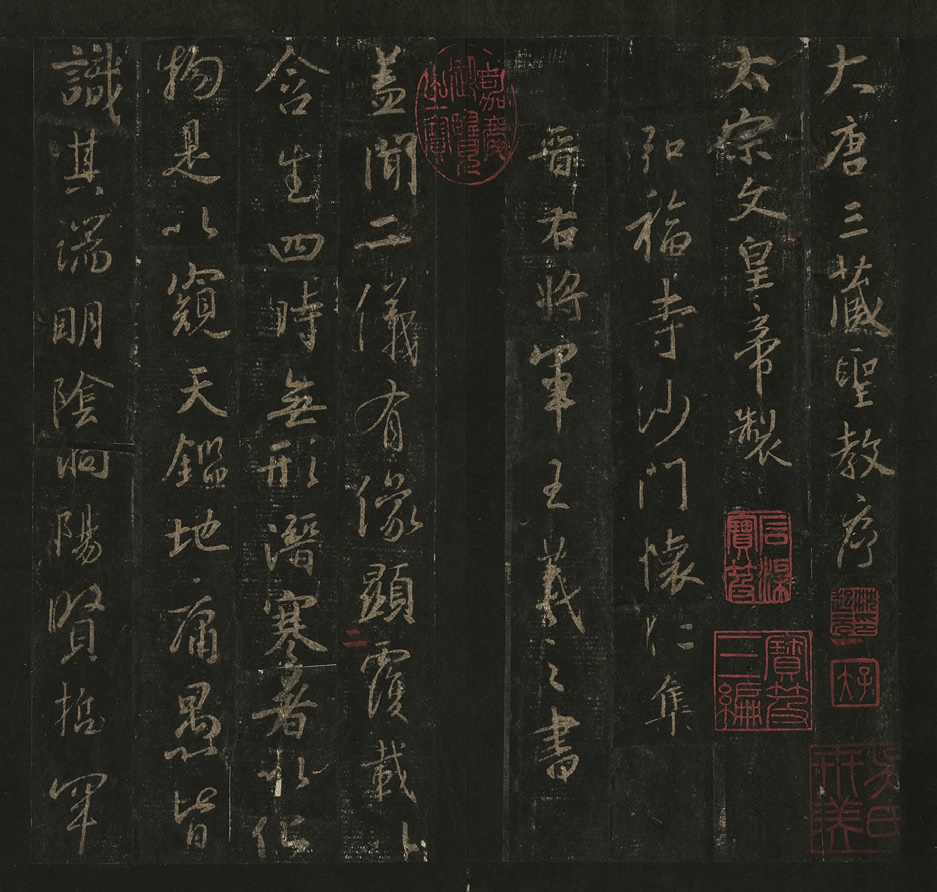 大唐三藏聖教序
太宗文皇帝製
弘福寺沙門懷仁集
晉右將軍王羲之書
蓋聞二儀有像顯覆載以
含生四時無形潛寒暑以化
物是以窺天鑑地庸愚皆
識其端明陰洞陽賢哲罕
石渠寶笈
寶笈三編
嘉慶御覽之寶
二